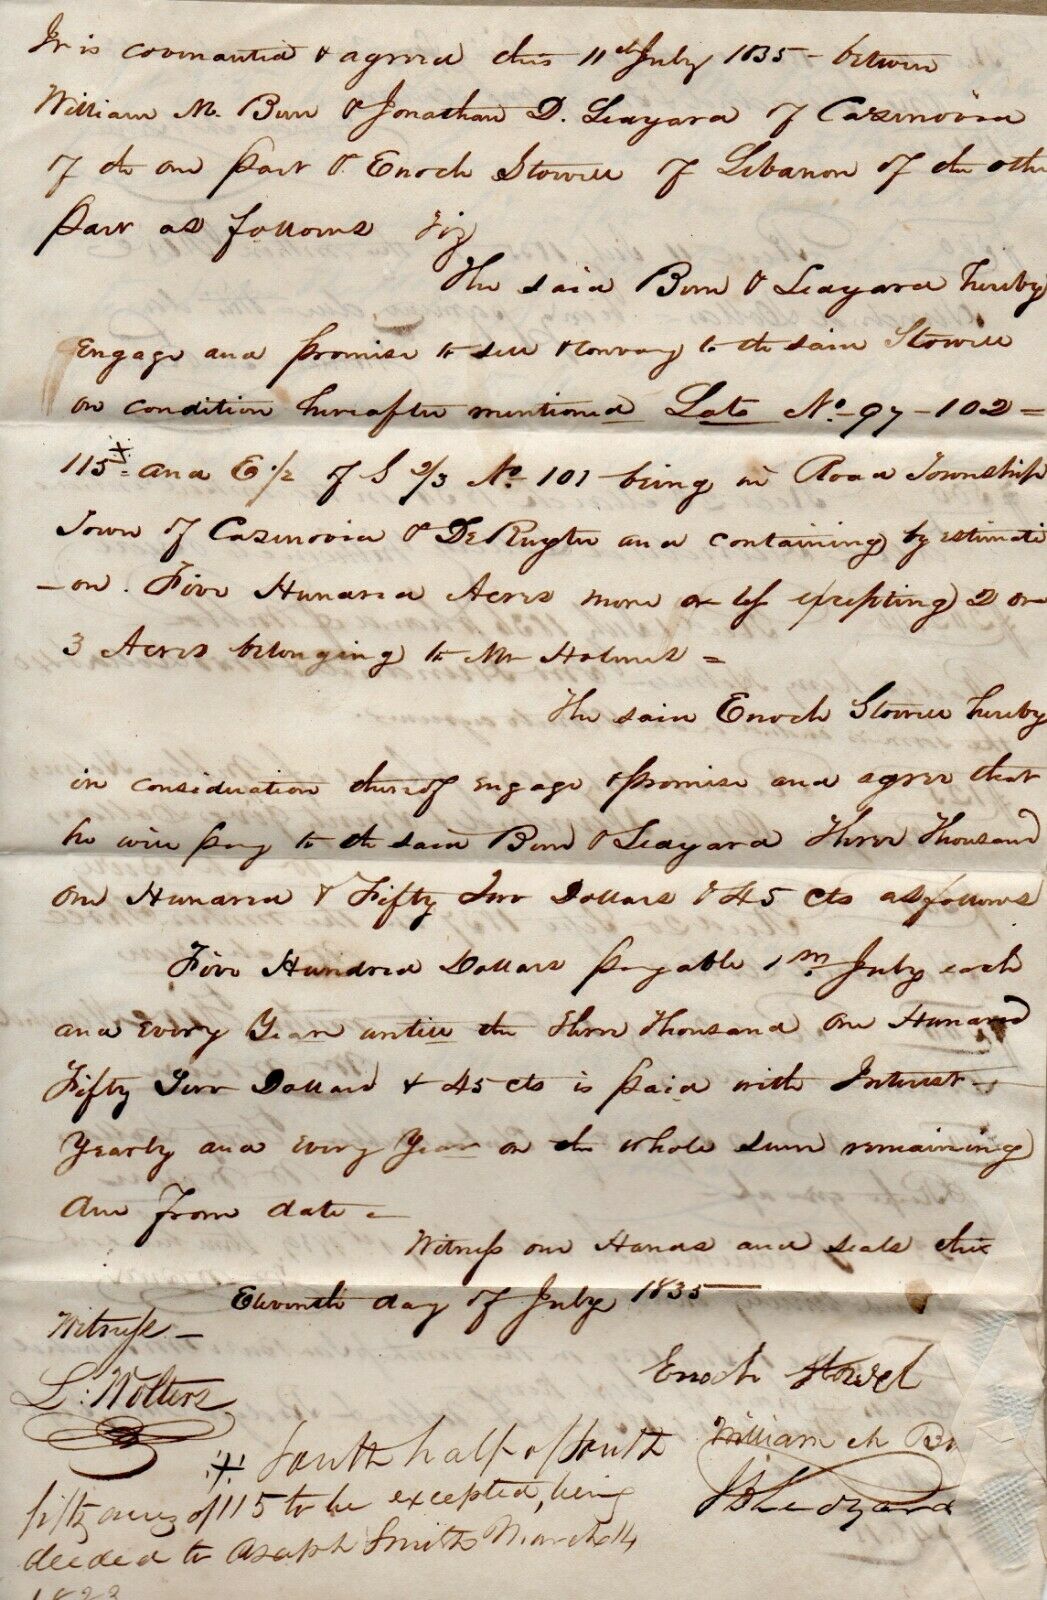 It is covenanted & agreed this 11th July 1835 - between
William M. Burr & Jonathan D. Ledyard of Cazenovia
of the one part & Enoch Stowell of Lebanon of the other
part as follows Viz
The said Burr & Ledyard hereby
Engage and promise to sell & convey to the said Stowell
on condition hereafter mentioned Lots No. 97 - 102 =
115 ⁜ and E 1/2 of S 2/3 No. 101 being in Road Township
Town of Cazenovia & DeRuyter and containing by estimati
-on. Five Hundred Acres more or less excepting 2 or
3 Acres belonging to Mr Holmes =
The said Enoch Stowell hereby
in consideration thereof engage & promise and agree that
he will pay to the said Burr & Ledyard Three Thousand
One Hundred & Fifty Two Dollars & 45 cts as follows
Five Hundred Dollars payable 1st July each
and every Year untill the Three Thousand One Hundred
Fifty Two Dollars & 45 cts is paid with Interest -
Yearly and every Year on the whole sum remaining
due from date =
Witness our Hands and seals this
Eleventh day of July 1835
Witness -
L. Wolters
Enoch Stowel
William M B
J D Ledyard
⁜ South half of South
fifty acres of 115 to be excepted, being
deeded to Asaph Smith March 14
1823